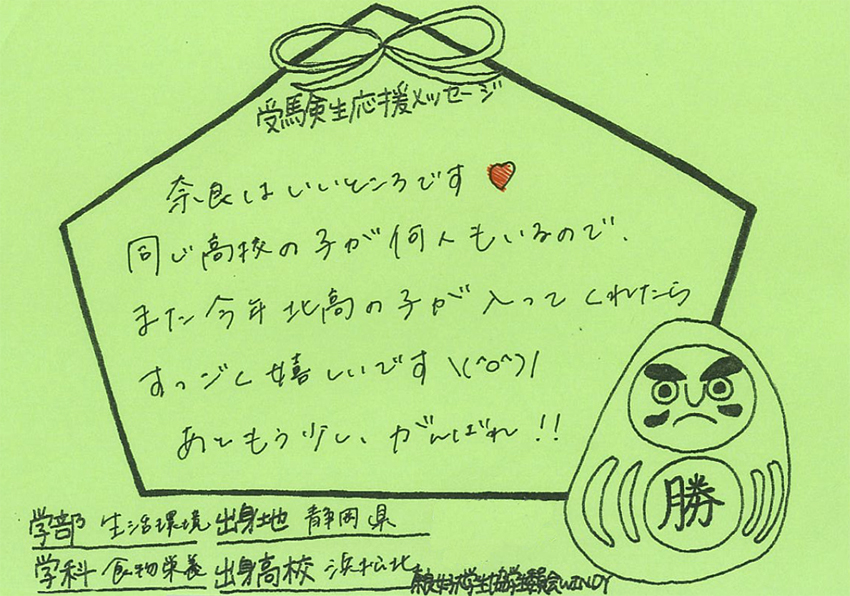 受験生応援メッセージ
奈良はいいところです
同じ高校の子が何人もいるので、
また今年北高の子が入ってくれたら
すっごく嬉しいです \(^o^)/
あともう少し、がんばれ!!
勝
学部 生活環境 出身地 静岡県
学科 食物栄養 出身高校 浜松北
奈良女子大学生協学生委員会WINDY